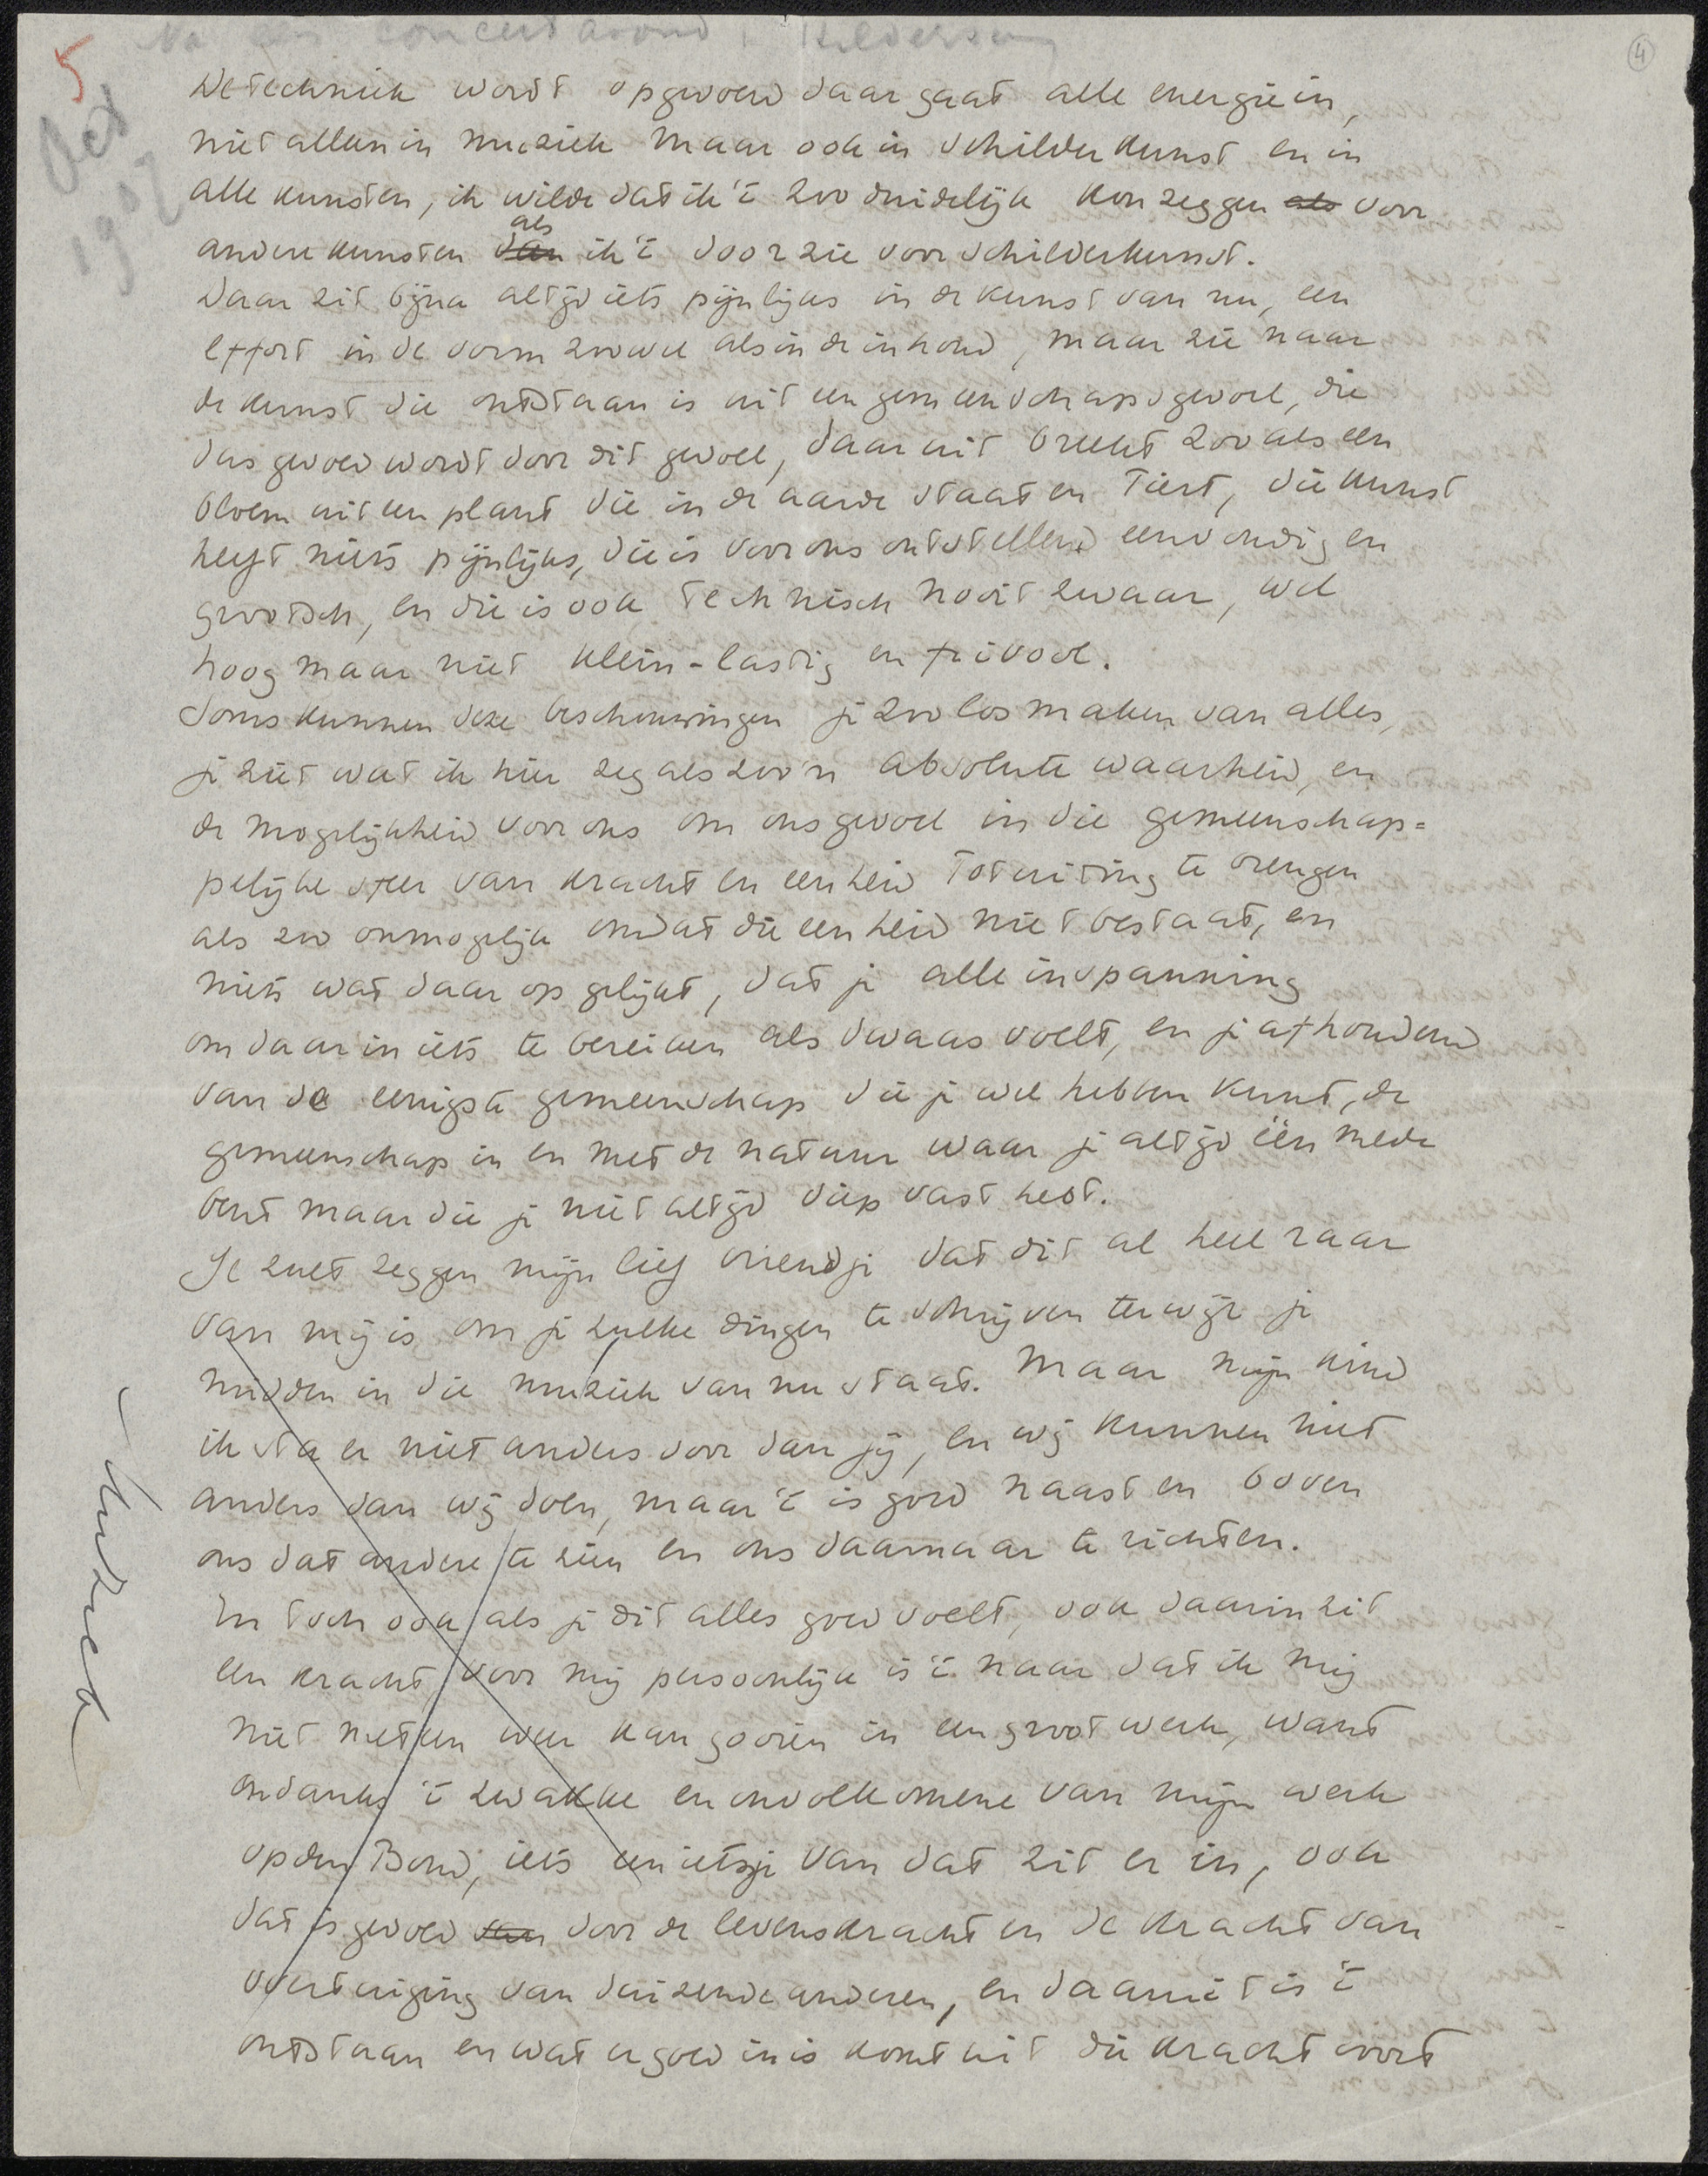 Na een concertavond
5
4
Oct
1907
De techniek wordt opgevoerd daar gaat alle energie in,
niet alleen in muziek maar ook in schilderkunst en in
alle kunsten, ik wilde dat ik 't zoo duidelijk kon zeggen als voor
andere kunsten dan als ik 't doorzie voor schilderkunst.
Daar zit bijna altijd iets pijnlijks in de kunst van nu, een
effort in de vorm zoowel als in de inhoud, maar zie naar
de kunst die ontstaan is uit een gemeenschapsgevoel, die
dus gevoed wordt door dit gevoel, daar uit breekt zooals een
bloem uit een plant die in de aarde staat en tiert, die kunst
heeft niets pijnlijks, die is voor ons ontstellend eenvoudig en
grootsch, en die is ook technisch nooit zwaar, wel
hoog maar niet klein-lastig en frivool.
Soms kunnen deze beschouwingen je zoo los maken van alles,
je ziet wat ik hier zeg als zoo'n absolute waarheid, en
de mogelijkheid voor ons om ons gevoel in die gemeenschap=
pelijke sfeer van kracht en eenheid tot uiting te brengen
als zoo onmogelijk omdat die eenheid niet bestaat, en
niets wat daar op gelijkt, dat je alle inspanning
om daar in iets te bereiken als dwaas voelt, en je afhoudend
van de eenigste gemeenschap die je wel hebben kunt, de
gemeenschap in en met de natuur waar je altijd één mede
bent maar die je niet altijd diep vast hebt.
Je zult zeggen mijn lief vriendje dat dit al heel raar
van mij is om je zulke dingen te schrijven terwijl je
midden in die muziek van nu staat. Maar mijn kind
ik sta er niet anders voor dan jij, en wij kunnen niet
anders dan wij doen, maar 't is goed naast en boven
ons dat andere te zien en ons daarnaar te richten.
En toch ook als je dit alles goed voelt, ook daarin zit
een kracht, voor mij persoonlijk is 't naar dat ik mij
niet meteen weer kan gooien in een groot werk, want
ondanks 't zwakke en onvolkomene van mijn werk
op den Bond, iets een ietsje van dat zit er in, ook
dat is gevoed van door de levenskracht en de kracht van
overtuiging van duizende anderen, en daaruit is 't
ontstaan en wat er goed in is komt uit die kracht voort